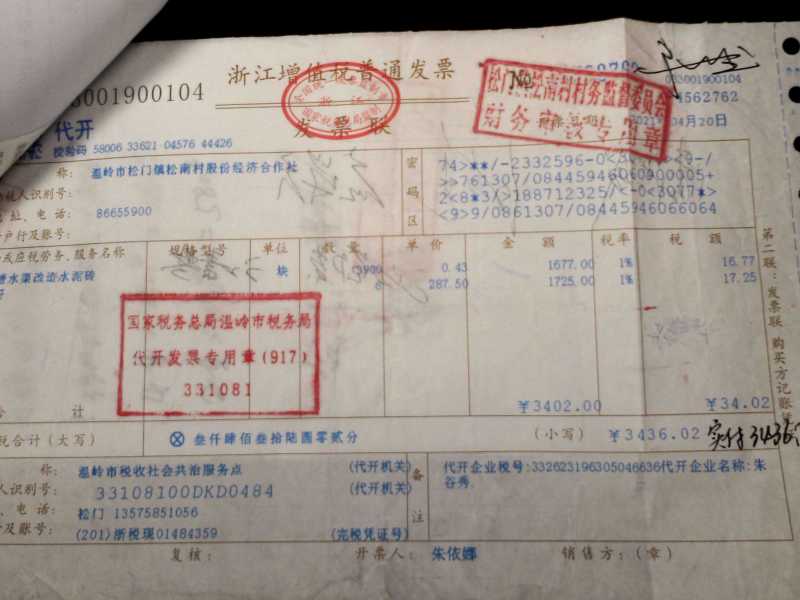 浙江增值税普通发票
发票联
3001900104
033001900104
4562762
04月20日
松南村村务监督委员会
财务
专用章
全国统一发票监制章
浙江
国家税务总局监制
代开
校验码 58006 33621 04576 44426
称: 温岭市松门镇松南村股份经济合作社
税人识别号:
址、电话: 86655900
户行及账号:
密码区
74>**/-2332596-0<
><9-/
>>761307/08445946060900005+
2<8*3/>188712325/<-0<3077*>
<9>9/0861307/08445946066064
或应税劳务、服务名称 规格型号 单位 数量 单价 金额 税率 税额
水渠改造水泥砖 块 3900 0.43 1677.00 1% 16.77
6 287.50 1725.00 1% 17.25
国家税务总局温岭市税务局
代开发票专用章(917)
331081
合计 ¥3402.00 ¥34.02
税合计(大写) ⊗ 叁仟肆佰叁拾陆圆零贰分 (小写) ¥3436.02 实付3436
称: 温岭市税收社会共治服务点 (代开机关)
人识别号: 33108100DKD0484 (代开机关)
、电话: 松门 13575851056
行及账号: (201)浙税现01484359 (完税凭证号)
备注
代开企业税号:332623196305046636代开企业名称:朱
谷秀.
复核: 开票人: 朱依娜 销售方:(章)
第二联:发票联 购买方记账凭